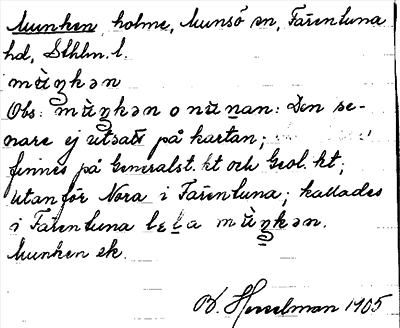 Munken, holme, Munsö sn, Färentuna
hd, Sthlm. l.
mùŋkən
Obs. mùŋkən o nùnan: Den se-
nare ej utsatt på kartan;
finnes på Generalst. kt och Geol. kt;
utanför Nora i Färentuna; kallades
i Färentuna lɛla mùŋkən.
Munken ek.
B. Hesselman 1905